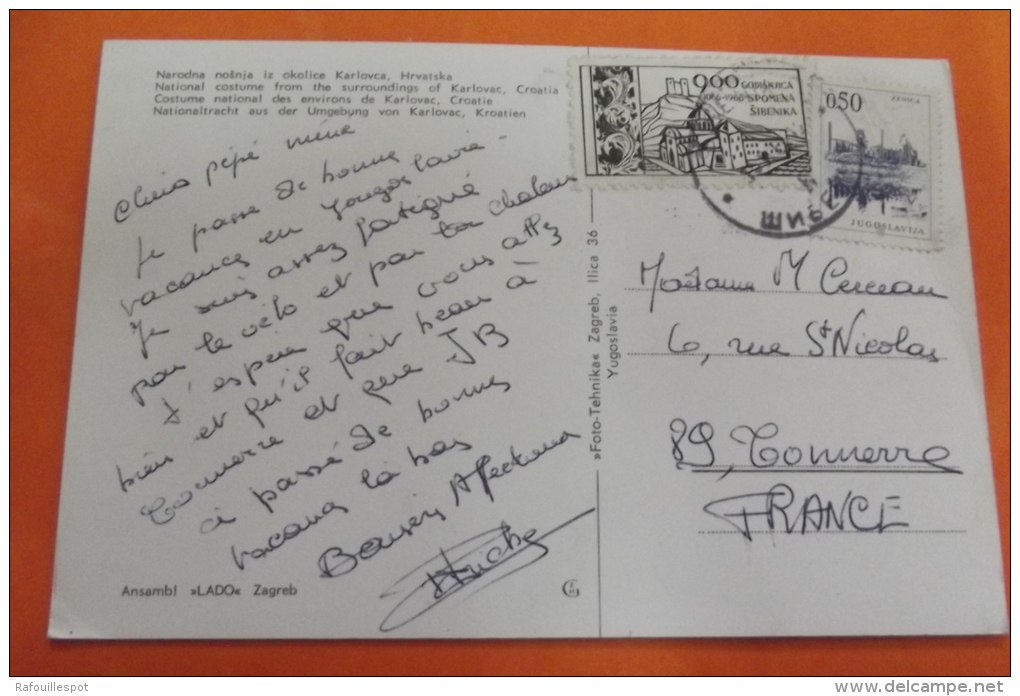 Narodna nošnja iz okolice Karlovca, Hrvatska
National costume from the surroundings of Karlovac, Croatia
Costume national des environs de Karlovac, Croatie
Nationaltracht aus der Umgebyng von Karlovac, Kroatien
Chers pépé mémé
Je passe de bonnes
vacances en Yougoslavie
Je suis assez fatigué
par le vélo et par la chaleur
J'espère que vous allez
bien et qu'il fait beau à
Tonnerre et que JB
a passé de bonnes
vacances là bas
Baisers Affectueux
Ansambl »LADO« Zagreb
»Foto-Tehnika« Zagreb, Ilica 36
Yugoslavia
900 GODIŠNJICA
1066-1966 SPOMENA
ŠIBENIKA
0.50
ZENICA
JUGOSLAVIJA
Madame M
6, rue St Nicolas
89, Tonnerre
FRANCE
Rafouillespot
www.delcampe.net